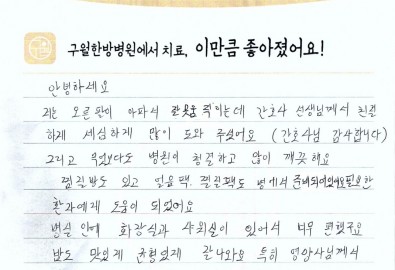 구월한방병원에서 치료, 이만큼 좋아졌어요!
안녕하세요
저는 오른팔이 아파서 잘못움직이는데 간호사 선생님께서 친절
하게 세심하게 많이 도와 주셨어요 (간호사님 감사합니다)
그리고 무엇보다도 병원이 청결하고 많이 깨끗해요
찜질방도 있고 얼음팩, 찜질팩도 병원에서 준비되어있어요 필요한
환자에게 도움이 되었어요
병실 안에 화장실과 샤워실이 있어서 너무 편했구요
밥도 맛있게 균형있게 잘나와요 특히 영양사님께서